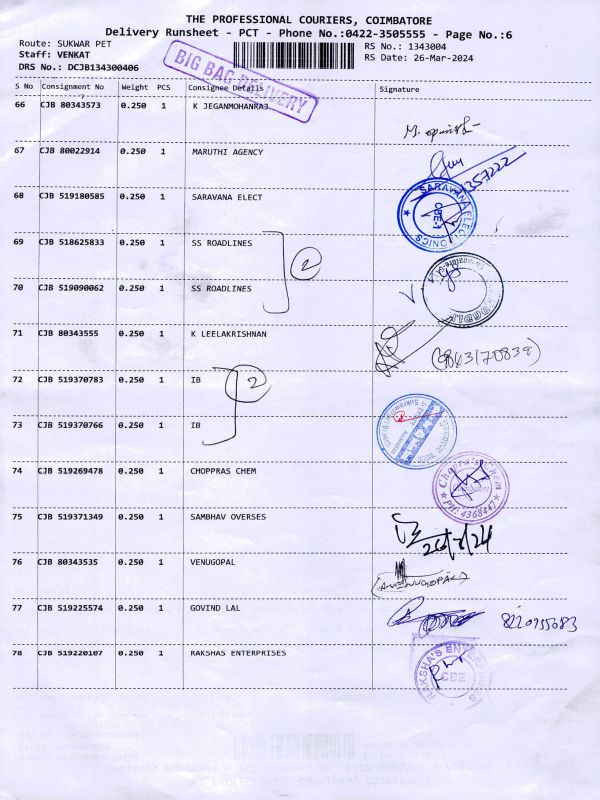 THE PROFESSIONAL COURIERS, COIMBATORE
Delivery Runsheet - PCT - Phone No.:0422-3505555 - Page No.:6
Route: SUKWAR PET
RS No.: 1343004
Staff: VENKAT
RS Date: 26-Mar-2024
DRS No.: DCJB134300406
BIG BAG DELIVERY
S No Consignment No Weight PCS Consignee Details Signature
66 CJB 80343573 0.250 1 K JEGANMOHANRAJ
67 CJB 80022914 0.250 1 MARUTHI AGENCY
357222
68 CJB 519180585 0.250 1 SARAVANA ELECT
SARAVANA ELECTRONICS
CBE-1
69 CJB 518625833 0.250 1 SS ROADLINES
2
70 CJB 519090062 0.250 1 SS ROADLINES
71 CJB 80343555 0.250 1 K LEELAKRISHNAN
(9843170839)
72 CJB 519370783 0.250 1 IB
2
73 CJB 519370766 0.250 1 IB
74 CJB 519269478 0.250 1 CHOPPRAS CHEM
Chopra's Chem
Coimbatore
PH: 4368447
75 CJB 519371349 0.250 1 SAMBHAV OVERSES
26/3/24
76 CJB 80343535 0.250 1 VENUGOPAL
(A.VENUGOPAL)
77 CJB 519225574 0.250 1 GOVIND LAL
8220955083
78 CJB 519220107 0.250 1 RAKSHAS ENTERPRISES
RAKSHA'S ENTERPRISES
CBE